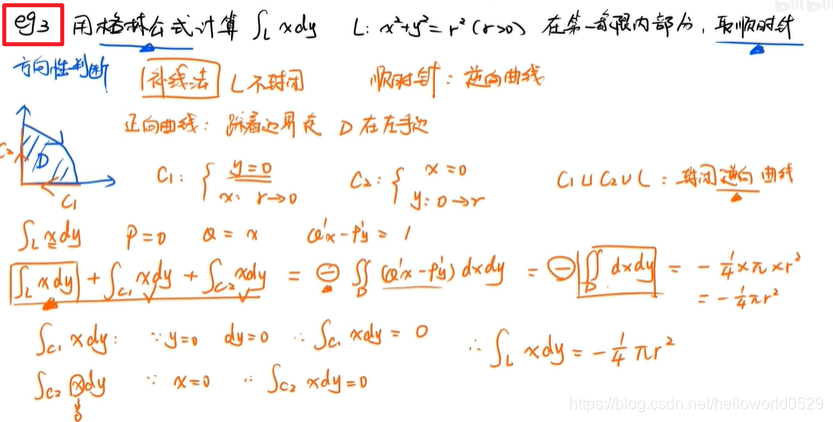 eg3 用格林公式计算 ∫_L xdy L: x²+y²=r²(r>0) 在第一象限内部分, 取顺时针
方向性判断 补线法 L不封闭 顺时针: 逆向曲线
正向曲线: 踩着边界走 D在左手边
C₂ D C₁
C₁: { y=0 x: r→0 C₂: { x=0 y: 0→r C₁∪C₂∪L: 封闭逆向曲线
∫_L xdy P=0 Q=x Q'x-P'y=1
∫_L xdy + ∫_C₁ xdy + ∫_C₂ xdy = ⊖ ∬_D (Q'x-P'y)dxdy = ⊖ ∬_D dxdy = -1/4×π×r²
= -1/4πr²
∫_C₁ xdy: ∵y=0 dy=0 ∴∫_C₁ xdy=0 ∴∫_L xdy = -1/4πr²
∫_C₂ xdy ∵x=0 ∴∫_C₂ xdy=0
0
https://blog.csdn.net/helloworld0529